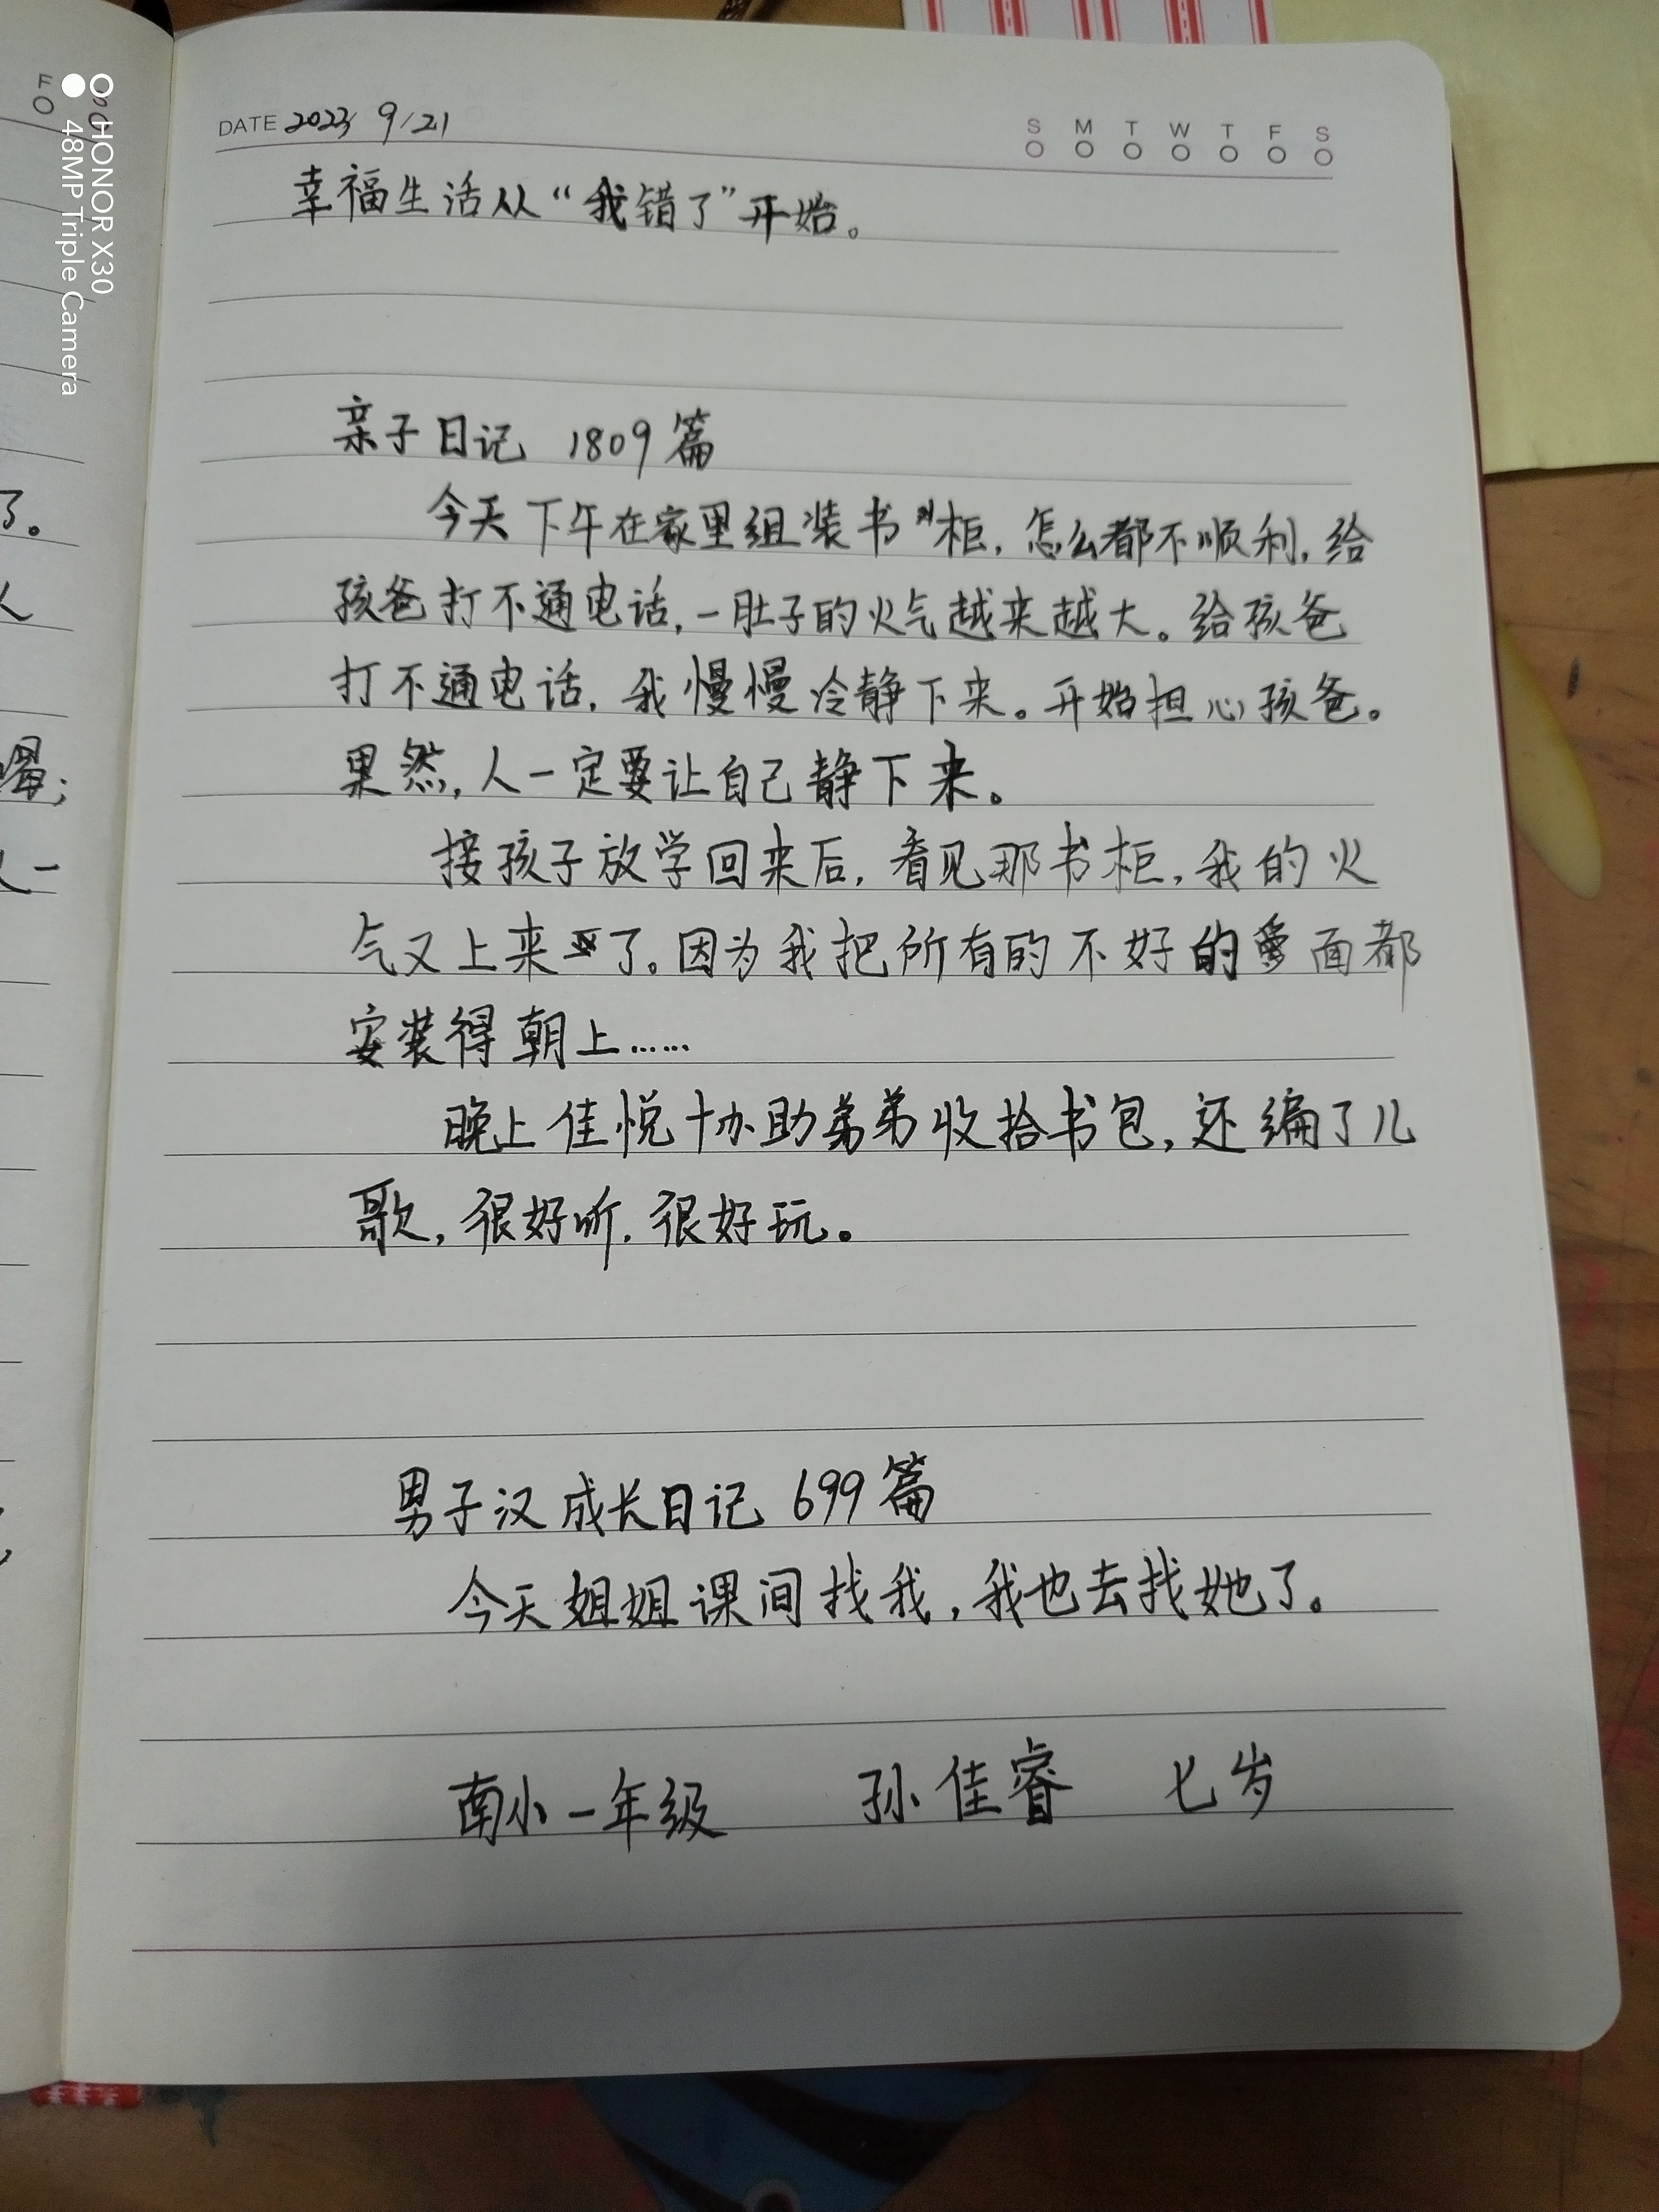 DATE 2023 9/21
S M T W T F S
幸福生活从“我错了”开始。
亲子日记 1809篇
今天下午在家里组装书柜,怎么都不顺利,给
孩爸打不通电话,一肚子的火气越来越大。给孩爸
打不通电话,我慢慢冷静下来。开始担心孩爸。
果然,人一定要让自己静下来。
接孩子放学回来后,看见那书柜,我的火
气又上来了。因为我把所有的不好的面都
安装得朝上……
晚上佳悦协助弟弟收拾书包,还编了儿
歌,很好听.很好玩。
男子汉成长日记 699篇
今天姐姐课间找我,我也去找她了。
南小一年级 孙佳睿 七岁
F
了。
人
一
HONOR X30
48MP Triple Camera